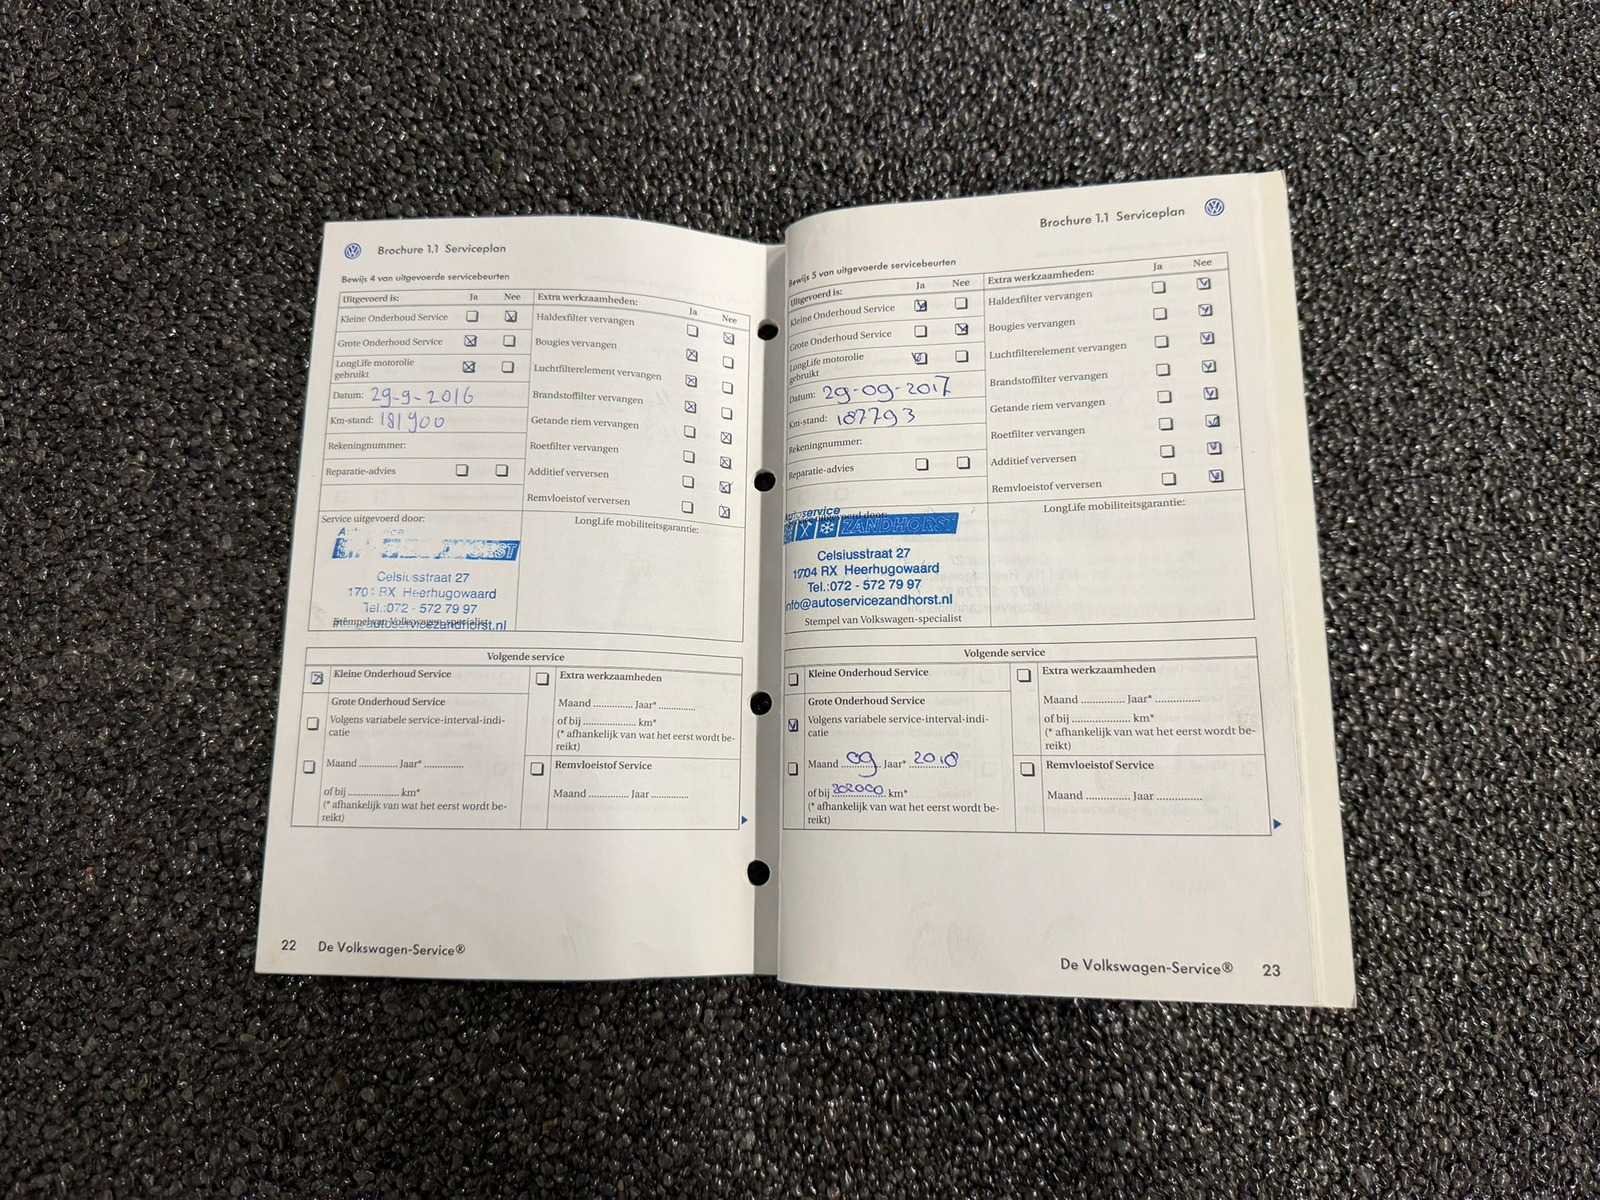 Brochure 1.1 Serviceplan
Bewijs 4 van uitgevoerde servicebeurten
Uitgevoerd is: Ja Nee
Kleine Onderhoud Service
Grote Onderhoud Service
LongLife motorolie
gebruikt
Datum: 29-9-2016
Km-stand: 181900
Rekeningnummer:
Reparatie-advies
Extra werkzaamheden: Ja Nee
Haldexfilter vervangen
Bougies vervangen
Luchtfilterelement vervangen
Brandstoffilter vervangen
Getande riem vervangen
Roetfilter vervangen
Additief verversen
Remvloeistof verversen
Service uitgevoerd door:
Celsiusstraat 27
RX Heerhugowaard
Tel.:072 - 572 79 97
autoservicezandhorst.nl
Stempel van Volkswagen-specialist
LongLife mobiliteitsgarantie:
Volgende service
Kleine Onderhoud Service
Grote Onderhoud Service
Volgens variabele service-interval-indi-
catie
Maand .............. Jaar* ..............
of bij .................... km*
(* afhankelijk van wat het eerst wordt be-
reikt)
Extra werkzaamheden
Maand .............. Jaar* .............
of bij .................... km*
(* afhankelijk van wat het eerst wordt be-
reikt)
Remvloeistof Service
Maand .............. Jaar .............
22 De Volkswagen-Service®
Brochure 1.1 Serviceplan
Bewijs 5 van uitgevoerde servicebeurten
Uitgevoerd is: Ja Nee
Kleine Onderhoud Service
Grote Onderhoud Service
LongLife motorolie
gebruikt
Datum: 29-09-2017
Km-stand: 187793
Rekeningnummer:
Reparatie-advies
Extra werkzaamheden: Ja Nee
Haldexfilter vervangen
Bougies vervangen
Luchtfilterelement vervangen
Brandstoffilter vervangen
Getande riem vervangen
Roetfilter vervangen
Additief verversen
Remvloeistof verversen
autoservice
ZANDHORST
Celsiusstraat 27
1704 RX Heerhugowaard
Tel.:072 - 572 79 97
info@autoservicezandhorst.nl
Stempel van Volkswagen-specialist
LongLife mobiliteitsgarantie:
Volgende service
Kleine Onderhoud Service
Grote Onderhoud Service
Volgens variabele service-interval-indi-
catie
Maand 09 Jaar* 2018
of bij 202000 km*
(* afhankelijk van wat het eerst wordt be-
reikt)
Extra werkzaamheden
Maand .............. Jaar* ..............
of bij .................... km*
(* afhankelijk van wat het eerst wordt be-
reikt)
Remvloeistof Service
Maand .............. Jaar ..............
De Volkswagen-Service® 23